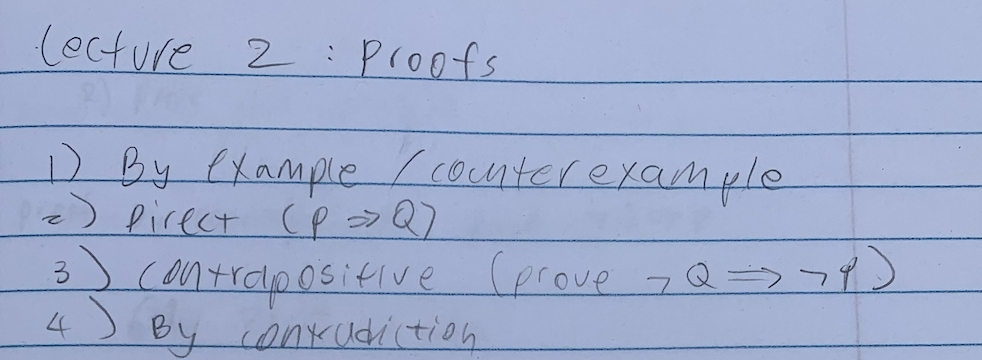 Lecture 2 : Proofs
1) By example / counterexample
2) Direct (P ⇒ Q)
3) Contrapositive (prove ¬Q ⇒ ¬P)
4) By contradiction